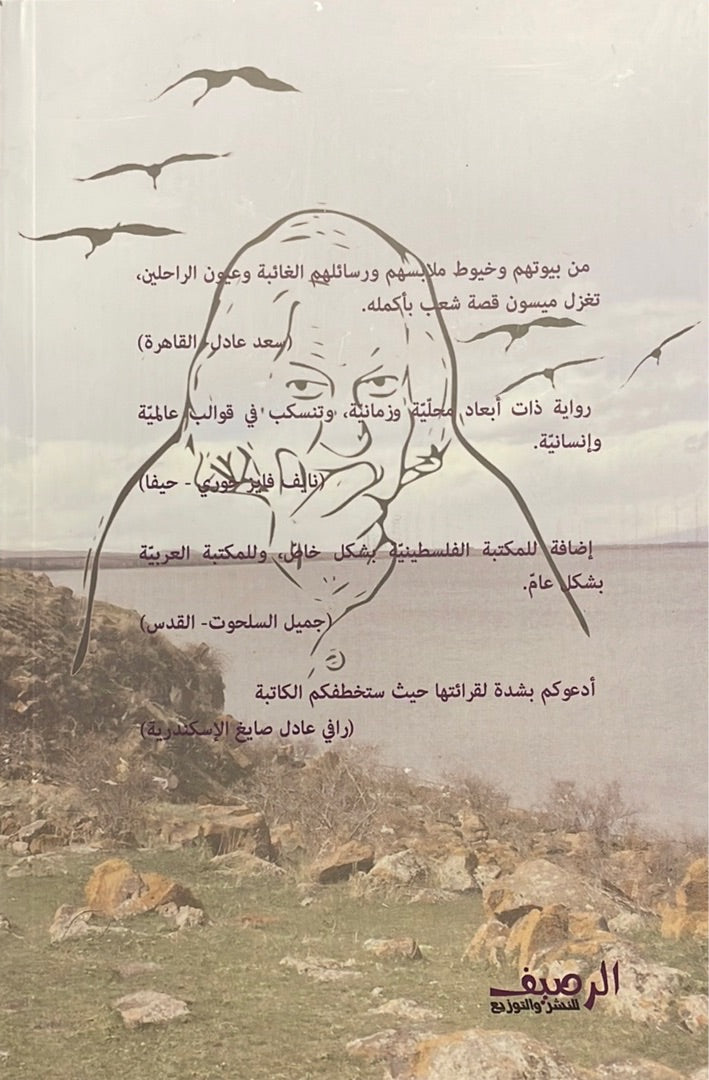 من بيوتهم وخيوط ملابسهم ورسائلهم الغائبة وعيون الراحلين،
تغزل ميسون قصة شعب بأكمله.
(سعد عادل- القاهرة)
رواية ذات أبعاد محلّيّة وزمانيّة، وتنسكب في قوالب عالميّة
وإنسانيّة.
(نايف فايز خوري - حيفا)
إضافة للمكتبة الفلسطينيّة بشكل خاصّ، وللمكتبة العربيّة
بشكل عامّ.
(جميل السلحوت- القدس)
أدعوكم بشدة لقرائتها حيث ستخطفكم الكاتبة
(رافي عادل صايغ الإسكندرية)
الرصيف
للنشر والتوزيع